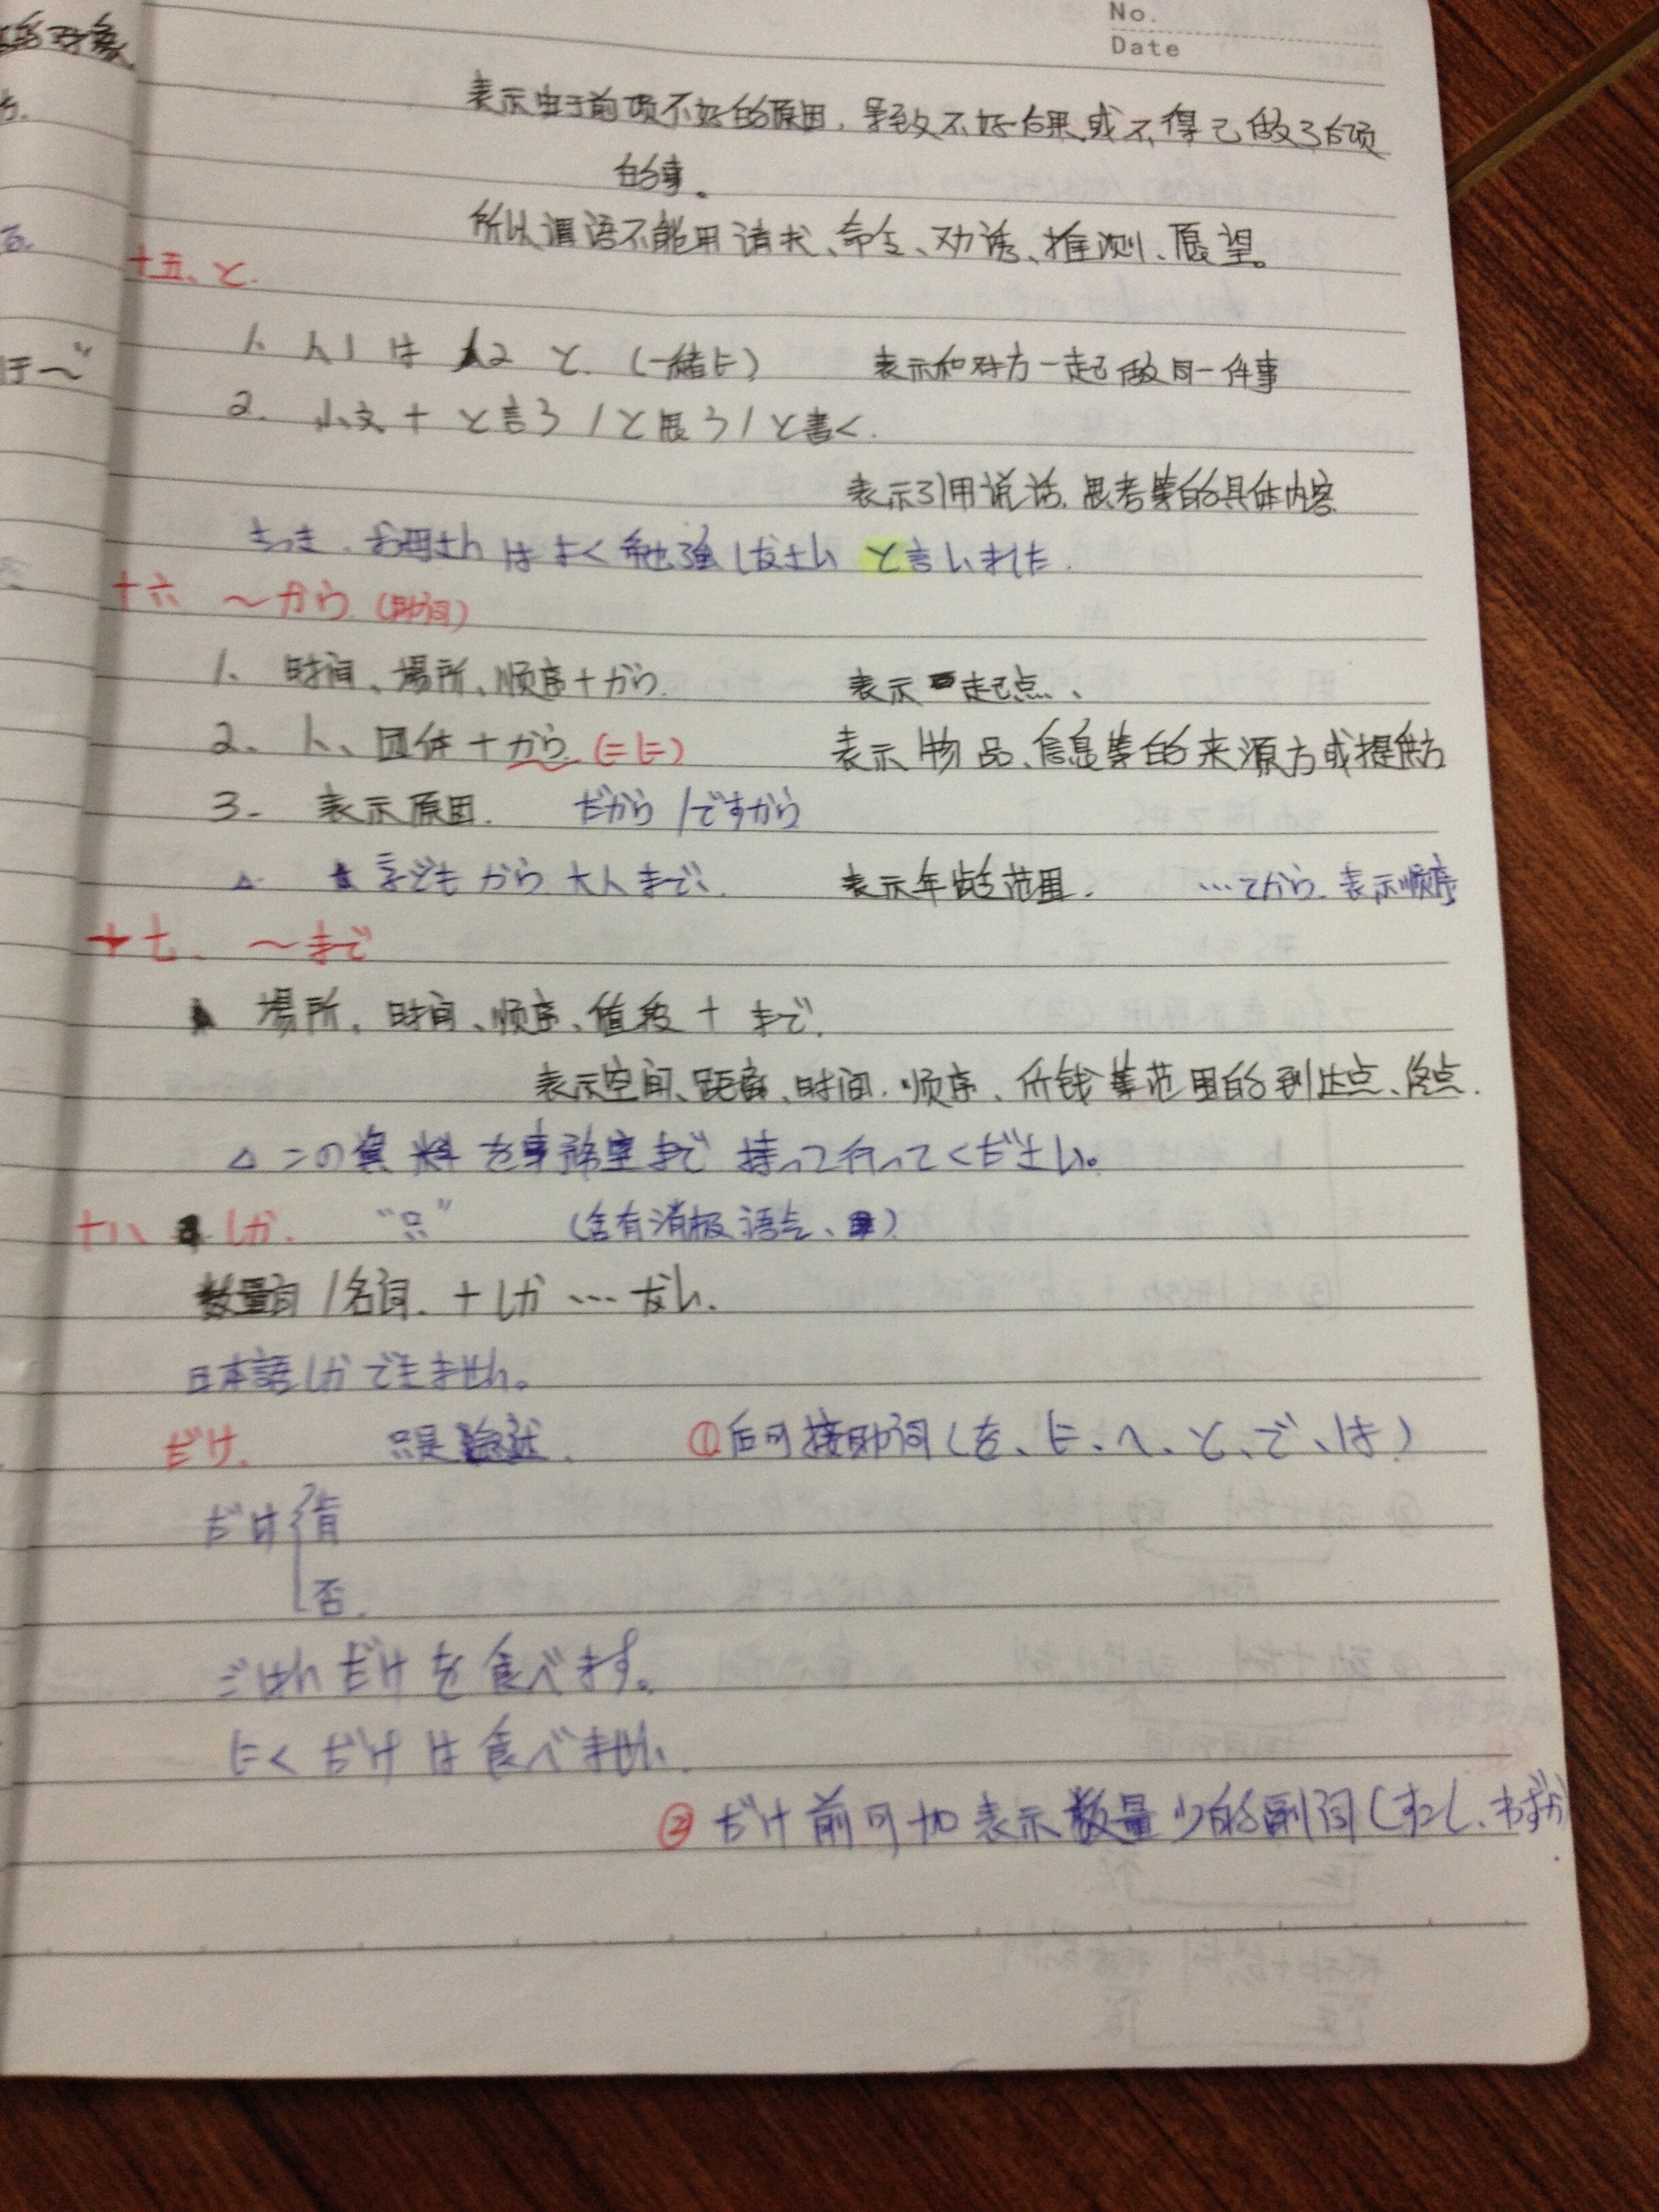 No.
Date
表示由于前项不好的原因，导致不好后果或不得已做了后项
的事。
所以谓语不能用请求、命令、劝诱、推测、愿望。
十五、と.
1. 人1 は 人2 と. (一緒に) 表示和对方一起做同一件事
2. 小文 + と言う / と思う / と書く.
表示引用说话.思考等的具体内容
さっき.お母さんはよく勉強しなさい と言いました.
十六 ～から (助词)
1、时间、場所、顺序+から. 表示 起点、
2、人、团体+から (=に) 表示物品、信息等的来源方或提供方
3- 表示原因. だから /ですから
△ 子どもから 大人まで、 表示年龄范围. …てから.表示顺序
十七、～まで
場所、时间、顺序、值段 + まで.
表示空间、距离、时间.顺序、价钱等范围的到达点、终点.
△ この資料を事務室まで 持って行ってください。
十八、しか. “只” (含有消极语气、)
数量词/名词. +しか … ない.
日本語しかできません。
だけ. 只是 ①后可接助词(を、に、へ、と、で、は)
だけ 肯
否.
ごはんだけを食べます。
にくだけは食べません.
② だけ前可加表示数量少的副词(すこし、わずか